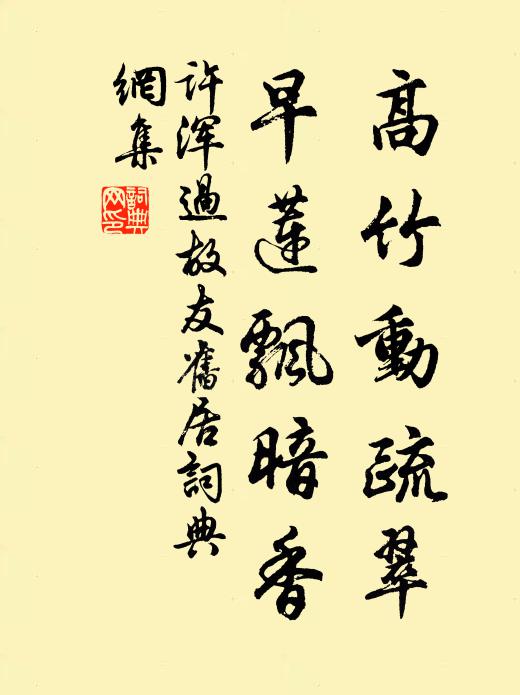 高竹動疏翠
早蓮飄暗香
許渾過故友舊居詞典
網集
詞典
网印